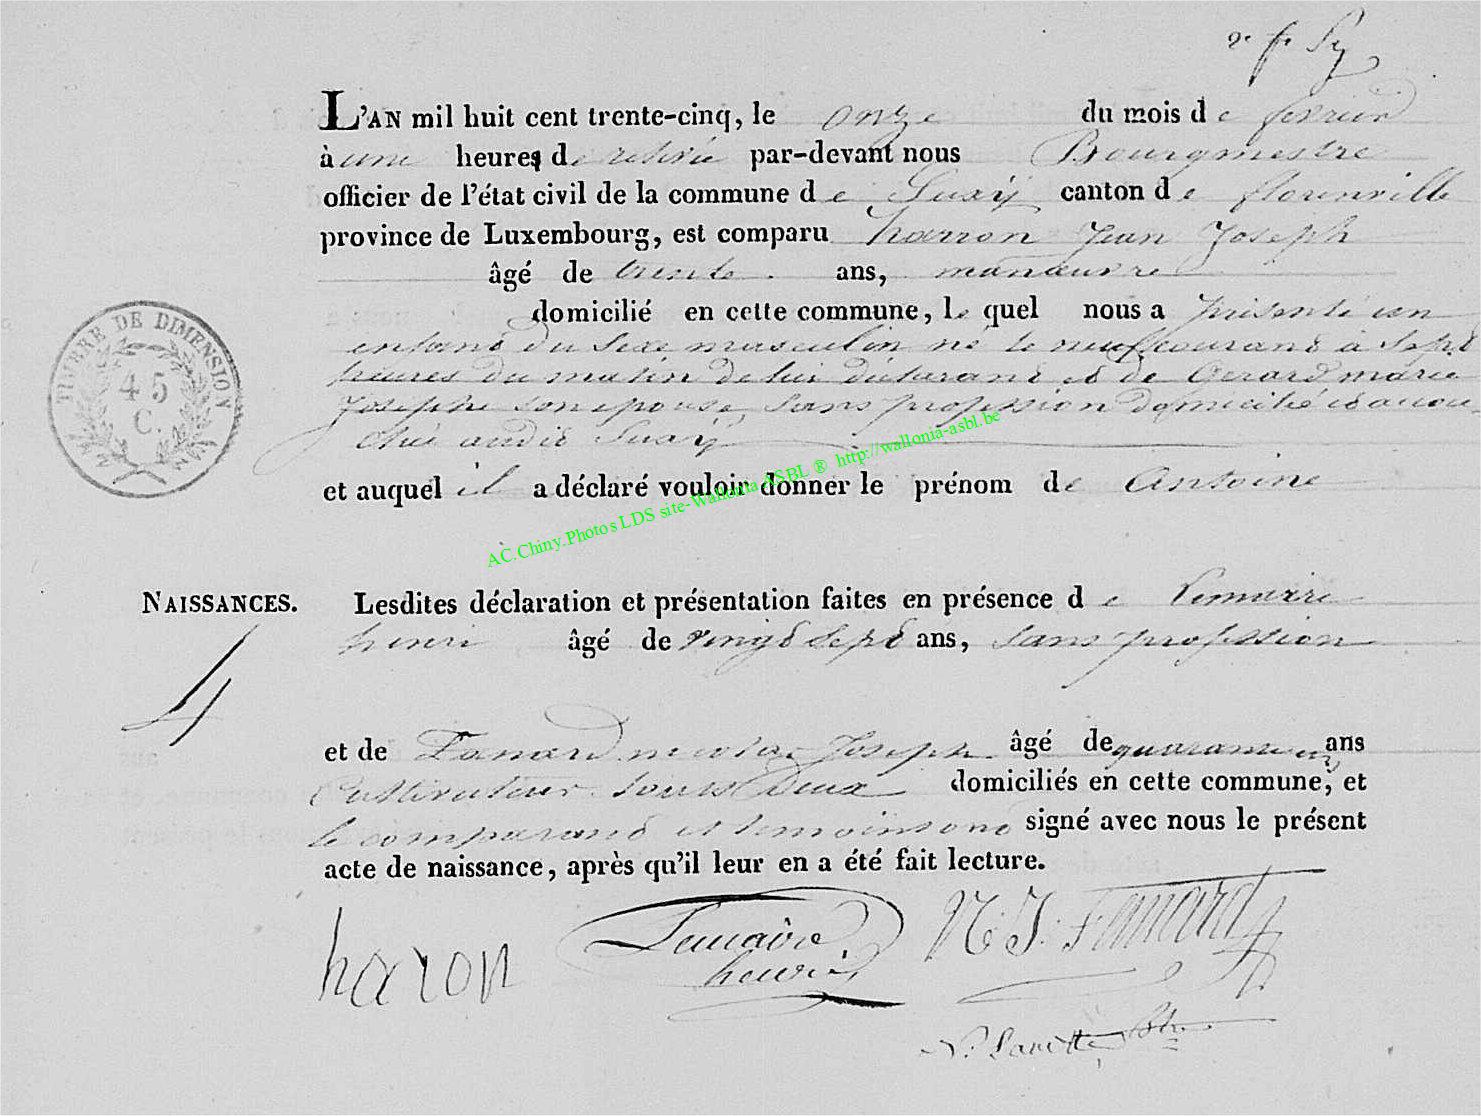 L'AN mil huit cent trente-cinq, le onze du mois de fevrier
à une heures de relevée par-devant nous Bourgmestre
officier de l'état civil de la commune de Suxÿ canton de florenville
province de Luxembourg, est comparu harron Jean Joseph
âgé de trente ans, manœuvre
domicilié en cette commune, le quel nous a présenté un
enfant du sexe masculin né le neuf courant à sept
heures du matin de lui déclarant et de Gerard marie
Josephe son epouse, sans profession domicilié
audit Suxÿ
et auquel il a déclaré vouloir donner le prénom de Antoine
AC.Chiny.Photos LDS site-Wallonia ASBL ® http://wallonia-asbl.be
TIMBRE DE DIMENSION
45
C.
NAISSANCES.
4
Lesdites déclaration et présentation faites en présence de Lemaire
henri âgé de vingt sept ans, sans profession
et de Fanard nicolas Joseph âgé de quarante ans
Cultivateur tous deux domiciliés en cette commune, et
le comparant et temoins ont signé avec nous le présent
acte de naissance, après qu'il leur en a été fait lecture.
haron
Lemaire
henri
N. J. Fanard